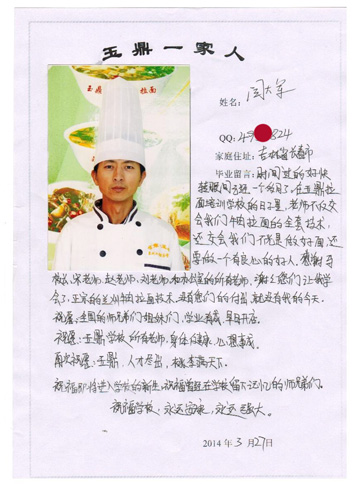 玉鼎一家人
姓名：闫大军
QQ：49 824
家庭住址：吉林省长春市
毕业留言：时间过的好快
转眼间 一个多月了，在玉鼎拉
面培训学校的日子里，老师不仅交
会我们牛肉拉面的全套技术，
还交会我们不光是的好面还
要的一个有良心的好人，感谢马
校长，宋老师，赵老师，刘老师，和 的所有老师，谢谢您们让我学
会了，正宗的兰州牛肉拉面技术，没有您们的付出，就没有我的今天。
祝愿：全国的师兄弟们姐妹们，学业有成，早日开店。
祝愿：玉鼎学校所有老师，身体健康，心想事成。
再次祝愿：玉鼎，人才尽出，桃李满天下。
祝福即将进入学校的新生，祝福曾经在学校留下记忆的师兄弟们。
祝福学校，永远 ，永远强大。
2014 年 3 月 27日